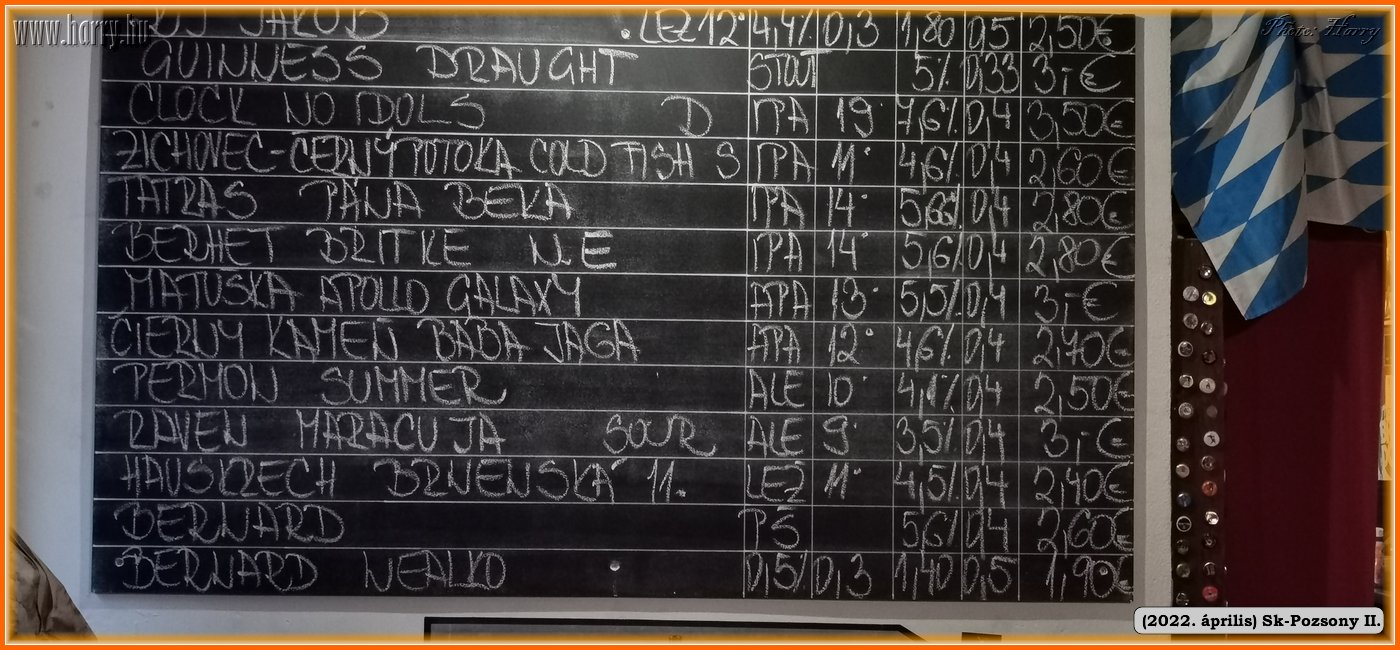 www.harry.hu
Photo: Harry
JAKUB .LEŽ 12° 4,4% 0,3 1,80 0,5 2,50€
GUINNESS DRAUGHT STOUT 5% 0,33 3,-€
CLOCK NO IDOLS D IPA 19° 7,6% 0,4 3,50€
ZICHOVEC-ČERNÝ POTOKA COLD FISH S IPA 11° 4,6% 0,4 2,60€
TATRAS PÁNA BEKA IPA 14° 0,4 2,80€
BERHET BRITKE N.E IPA 14° 5,6% 0,4 2,80€
MATUŠKA APOLLO GALAXY APA 13° 5,5% 0,4 3,-€
ČIERNY KAMEŇ BABA JAGA APA 12° 4,6% 0,4 2,70€
PERMON SUMMER ALE 10° 4,1% 0,4 2,50€
RAVEN MARACUJA SOUR ALE 9° 3,5% 0,4 3,-€
HAUSKRECH BRNENSKÁ 11. LEŽ 11° 4,5% 0,4 2,40€
BERNARD PŠ 5,6% 0,4 2,60€
BERNARD NEALKO 0,5% 0,3 1,40 0,5 1,90€
(2022. április) Sk-Pozsony II.